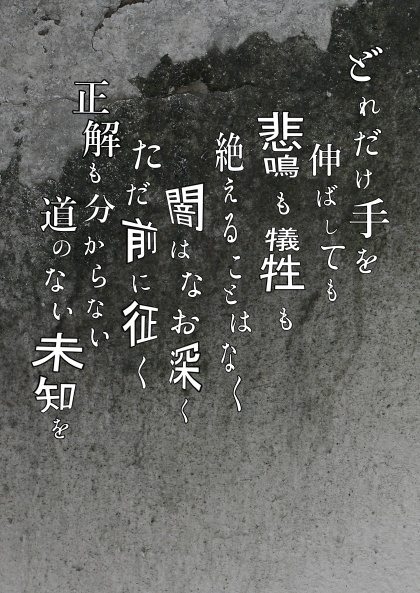 どれだけ手を
伸ばしても
悲鳴も犠牲も
絶えることはなく
闇はなお深く
ただ前に征く
正解も分からない
道のない未知を